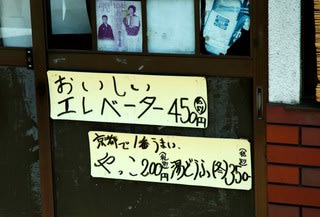 おいしい
エレベーター 450円
京都で1番うまい、
やっこ200円 湯どうふ(冬)350-